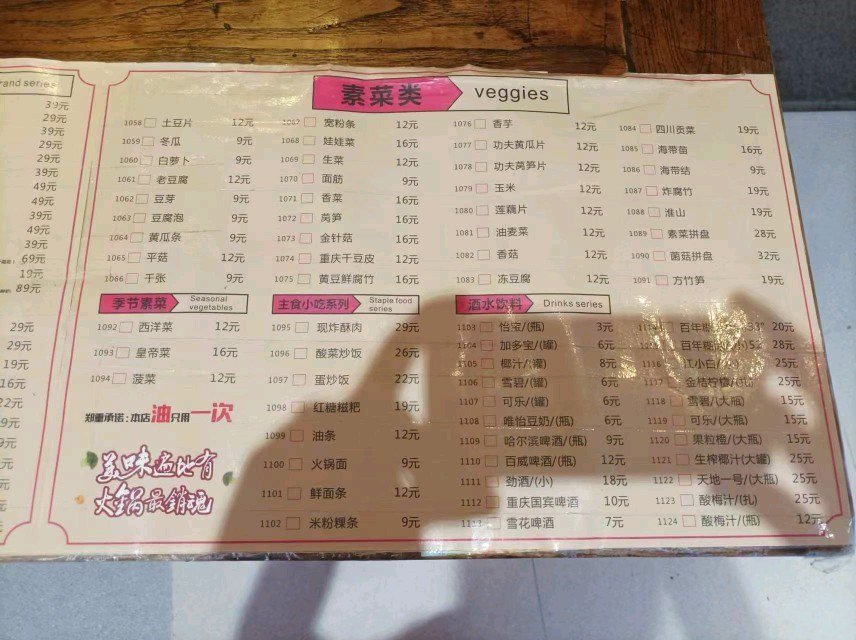 rand series
39元
29元
39元
29元
29元
39元
49元
49元
39元
49元
39元
69元
19元
89元
29元
29元
19元
16元
22元
9元
素菜类 veggies
1058 土豆片 12元
1059 冬瓜 9元
1060 白萝卜 9元
1061 老豆腐 12元
1062 豆芽 9元
1063 豆腐泡 9元
1064 黄瓜条 9元
1065 平菇 12元
1066 千张 9元
1067 宽粉条 12元
1068 娃娃菜 16元
1069 生菜 12元
1070 面筋 9元
1071 香菜 16元
1072 莴笋 16元
1073 金针菇 16元
1074 重庆干豆皮 12元
1075 黄豆鲜腐竹 16元
1076 香芋 12元
1077 功夫黄瓜片 12元
1078 功夫莴笋片 12元
1079 玉米 12元
1080 莲藕片 12元
1081 油麦菜 12元
1082 香菇 12元
1083 冻豆腐 12元
1084 四川贡菜 19元
1085 海带苗 16元
1086 海带结 9元
1087 炸腐竹 19元
1088 淮山 19元
1089 素菜拼盘 28元
1090 菌菇拼盘 32元
1091 方竹笋 19元
季节素菜 Seasonal vegetables
1092 西洋菜 12元
1093 皇帝菜 16元
1094 菠菜 12元
郑重承诺:本店油只用一次
美味遍地有
火锅最销魂
主食小吃系列 Staple food series
1095 现炸酥肉 29元
1096 酸菜炒饭 26元
1097 蛋炒饭 22元
1098 红糖糍粑 19元
1099 油条 12元
1100 火锅面 9元
1101 鲜面条 12元
1102 米粉粿条 9元
酒水饮料 Drinks series
1103 怡宝/(瓶) 3元
1104 加多宝/(罐) 6元
1105 椰汁/(罐) 8元
1106 雪碧/(罐) 6元
1107 可乐/(罐) 6元
1108 唯怡豆奶/(瓶) 6元
1109 哈尔滨啤酒/(瓶) 9元
1110 百威啤酒/(瓶) 12元
1111 劲酒/(小) 18元
1112 重庆国宾啤酒 10元
1113 雪花啤酒 7元
百年糊涂/(小)33° 20元
百年糊涂/(小)52 28元
1116 江小白/(小) 25元
1117 金桔柠檬/(扎) 25元
1118 雪碧/(大瓶) 15元
1119 可乐/(大瓶) 15元
1120 果粒橙/(大瓶) 15元
1121 生榨椰汁/(大罐) 25元
1122 天地一号/(大瓶) 15元
1123 酸梅汁/(扎) 25元
1124 酸梅汁/(瓶) 12元